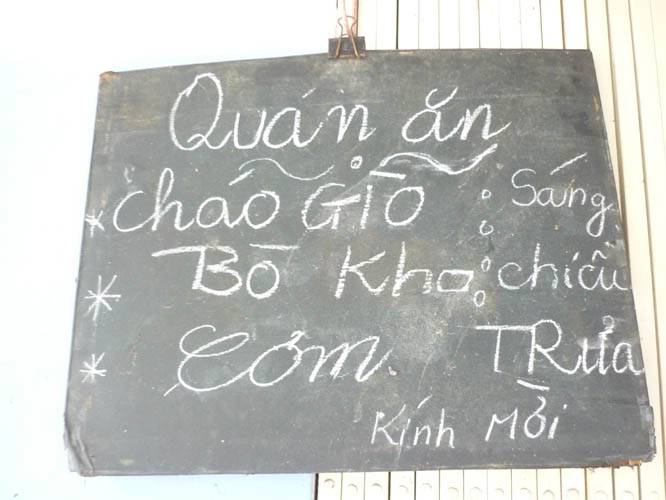 Quán ăn
* Cháo Giò : Sáng
* Bò Kho : chiều
* Cơm TRưa
Kính Mời